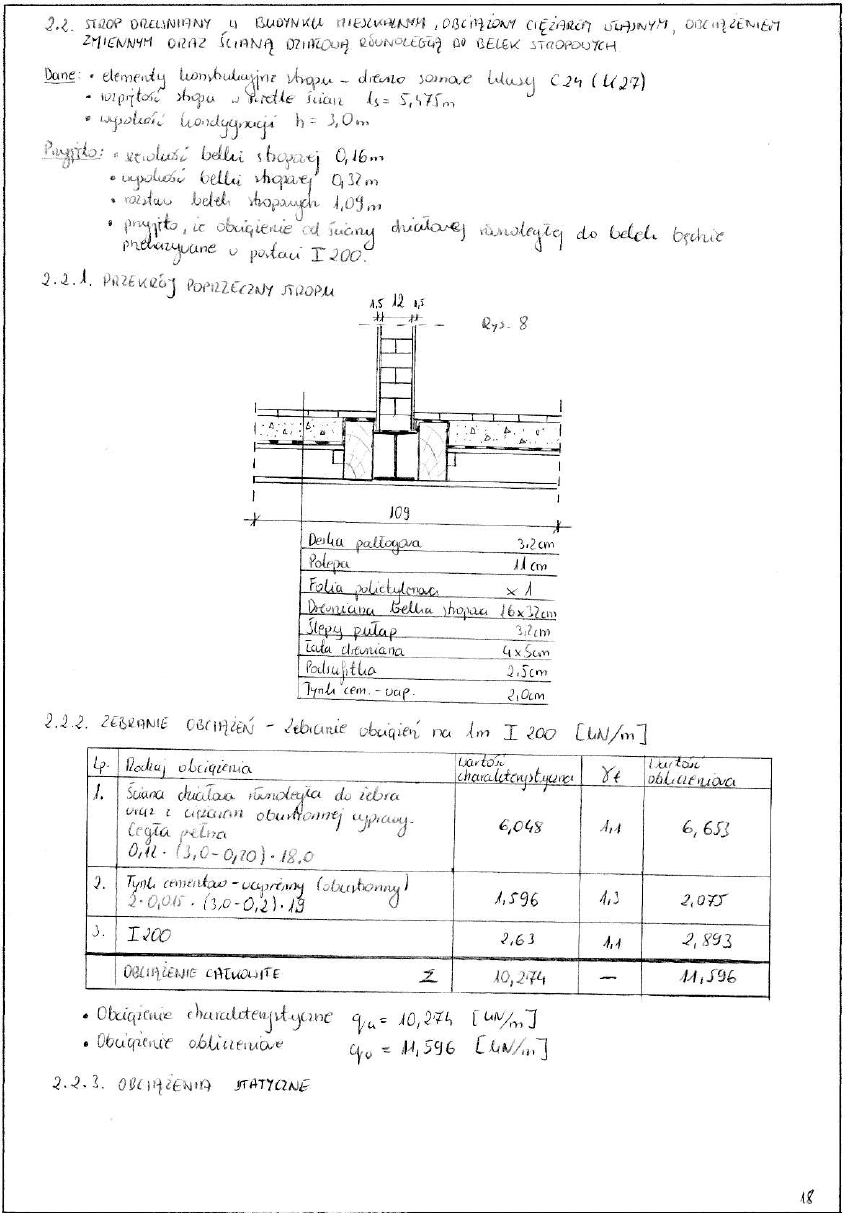 2.2. STROP DREWNIANY W BUDYNKU MIESZKALNYM, OBCIĄŻONY CIĘŻAREM WŁASNYM, OBCIĄŻENIEM
ZMIENNYM ORAZ ŚCIANĄ DZIAŁOWĄ RÓWNOLEGŁĄ DO BELEK STROPOWYCH
Dane: • elementy konstrukcyjne stropu – drewno sosnowe klasy C24 (K27)
• rozpiętość stropu w świetle ścian ls = 5,475m
• wysokość kondygnacji h = 3,0m
Przyjęto: • szerokość belki stropowej 0,16m
• wysokość belki stropowej 0,32m
• rozstaw belek stropowych 1,09m
• przyjęto, że obciążenie od ściany działowej równoległej do belek będzie
przekazywane w postaci I 200.
2.2.1. PRZEKRÓJ POPRZECZNY STROPU
1,5 12 1,5
Rys. 8
109
Deska podłogowa 3,2cm
Polepa 11cm
Folia polietylenowa x 1
Drewniana belka stropowa 16x32cm
Ślepy pułap 3,2cm
Łata drewniana 4x5cm
Podsufitka 2,5cm
Tynk cem.-wap. 2,0cm
2.2.2. ZEBRANIE OBCIĄŻEŃ – Zebranie obciążeń na 1m I 200 [kN/m]
Lp. Rodzaj obciążenia Wartość charakterystyczna γf Wartość obliczeniowa
1. Ściana działowa równoległa do żebra
wraz z ciężarem obustronnej wyprawy.
Cegła pełna
0,12 · (3,0-0,20) · 18,0 6,048 1,1 6,653
2. Tynk cementowo-wapienny (obustronny)
2·0,015 · (3,0-0,2)·19 1,596 1,3 2,075
3. I 200 2,63 1,1 2,893
OBCIĄŻENIE CAŁKOWITE Σ 10,274 – 11,596
• Obciążenie charakterystyczne qk = 10,274 [kN/m]
• Obciążenie obliczeniowe qo = 11,596 [kN/m]
2.2.3. OBCIĄŻENIA STATYCZNE
18